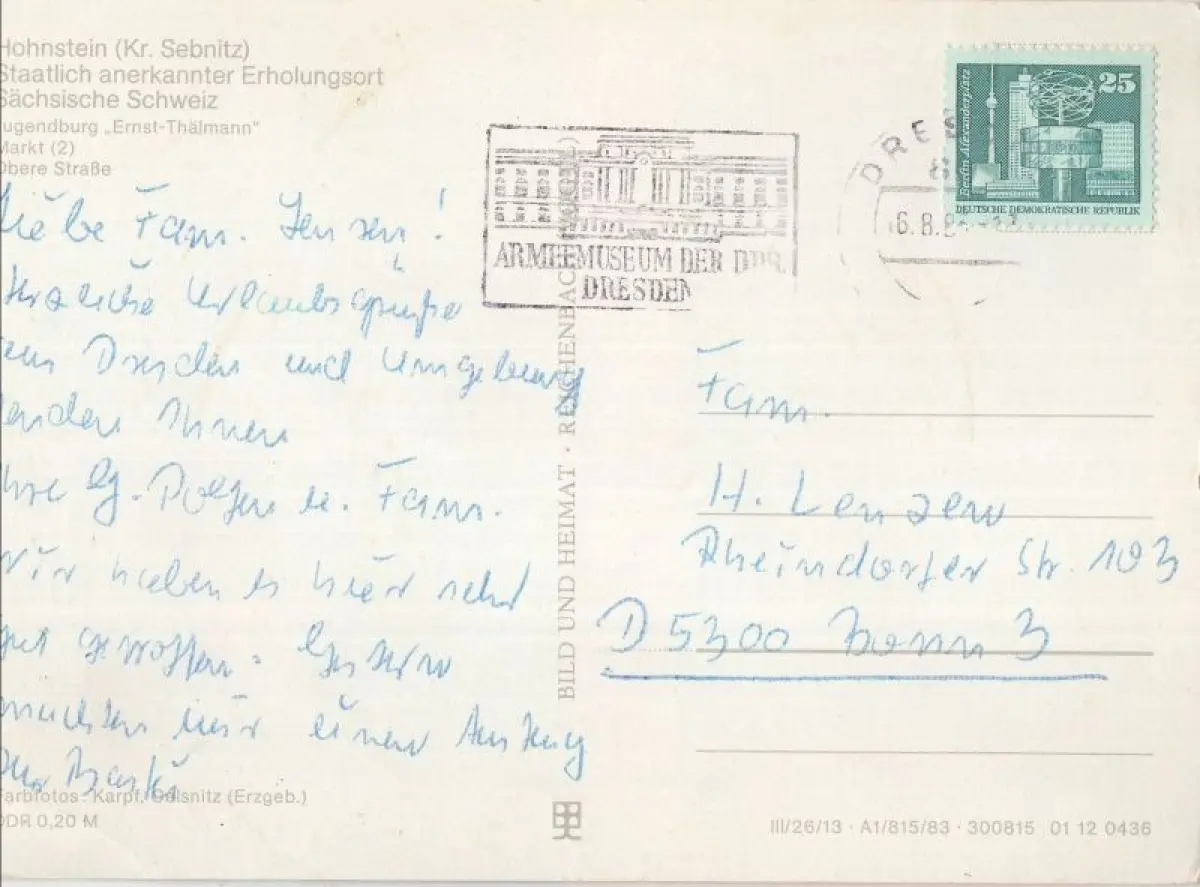 Hohnstein (Kr. Sebnitz)
Staatlich anerkannter Erholungsort
Sächsische Schweiz
Jugendburg „Ernst-Thälmann"
Markt (2)
Obere Straße
Liebe Fam. !
Herzliche Urlaubsgrüße
aus Dresden und Umgebung
senden Ihnen
Ihre G. u. Fam.
Wir haben es hier sehr
gut getroffen. Gestern
machten wir einen
Farbfotos: Karpf, Oelsnitz (Erzgeb.)
DDR 0,20 M
BILD UND HEIMAT · REICHENBACH (VOGTL)
ARMEEMUSEUM DER DDR
DRESDEN
DRES
6.8.8
25
Berlin Alexanderplatz
DEUTSCHE DEMOKRATISCHE REPUBLIK
Fam.
H. Lenzen
Rheindorfer Str. 103
D 5300 Bonn 3
III/26/13 · A1/815/83 · 300815 01 12 0436